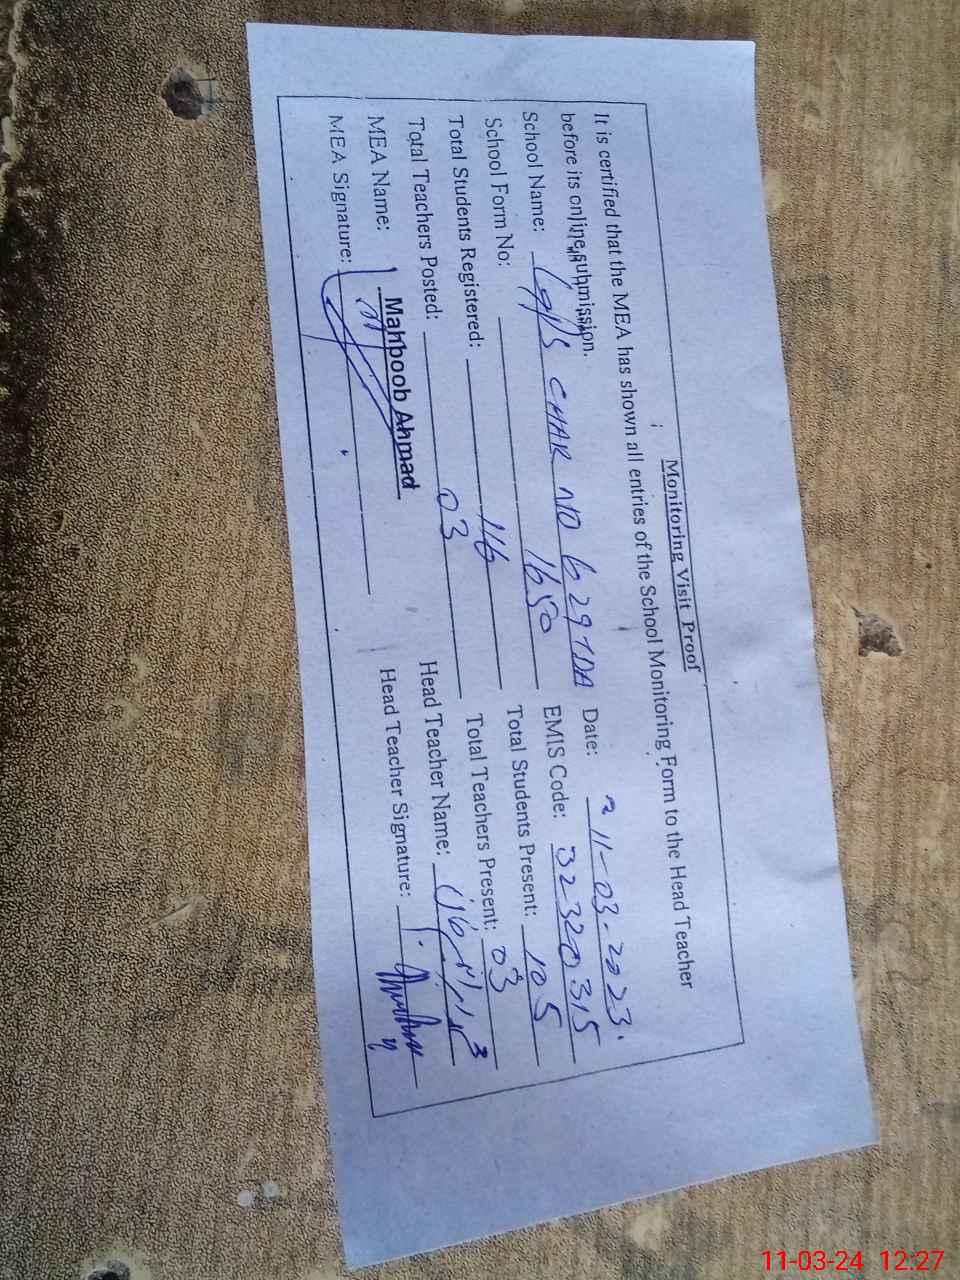 Monitoring Visit Proof
It is certified that the MEA has shown all entries of the School Monitoring Form to the Head Teacher
before its online submission.
School Name: GGPS CHAK NO 629 TDA Date: 11-03-2023
School Form No: 1650 EMIS Code: 32320315
Total Students Registered: 116 Total Students Present: 105
Total Teachers Posted: 03 Total Teachers Present: 03
MEA Name: Mahboob Ahmad Head Teacher Name:
MEA Signature: Head Teacher Signature:
11-03-24 12:27